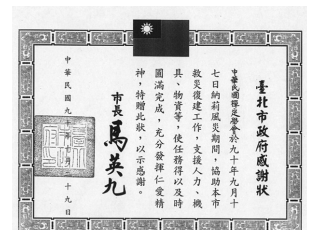 臺北市政府感謝狀
中華民國禪定學會於九十年九月十
七日納莉風災期間，協助本市
救災復建工作，支援人力、機
具、物資等，使任務得以及時
圓滿完成，充分發揮仁愛精
神，特贈此狀，以示感謝。
市長 馬英九
中華民國九十九日